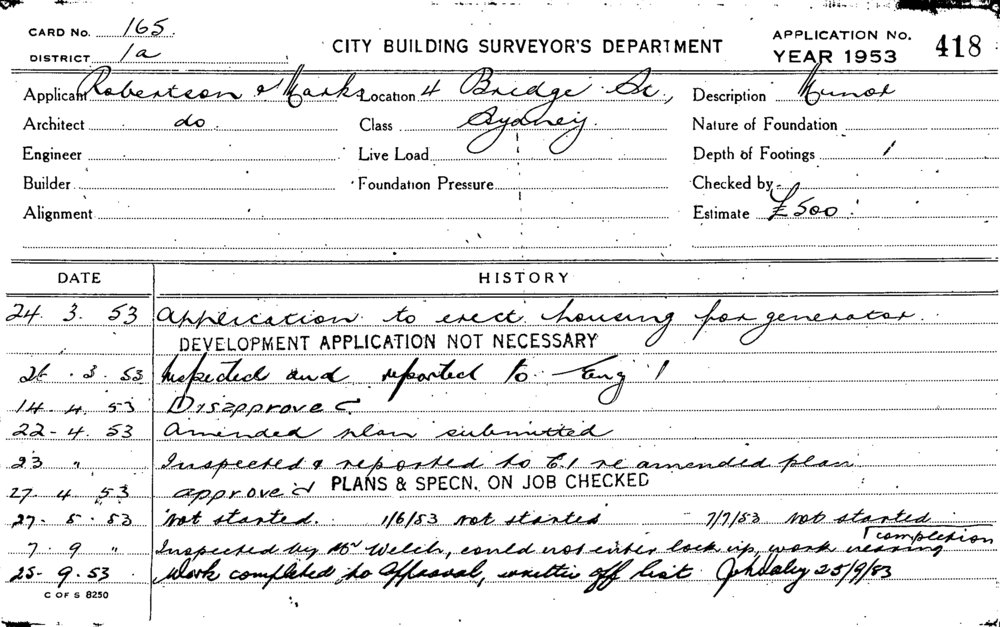 CARD No. 165.
DISTRICT 1a
CITY BUILDING SURVEYOR'S DEPARTMENT
APPLICATION No.
YEAR 1953
418
Applicant Robertson & Marks Location 4 Bridge St., Description Minor
Architect do. Class Sydney. Nature of Foundation
Engineer Live Load Depth of Footings
Builder Foundation Pressure Checked by
Alignment Estimate £500.
DATE HISTORY
24. 3. 53 Application to erect housing for generator.
DEVELOPMENT APPLICATION NOT NECESSARY
26. 3. 53 Inspected and reported to Eng 1
14. 4. 53 Disapproved
22-4. 53 Amended plan submitted
23 " Inspected & reported to E.1 re amended plan
27. 4. 53 approved PLANS & SPECN. ON JOB CHECKED
27. 5. 53 Not started. 1/6/53 Not started 7/7/53 Not started.
completion
7. 9 " Inspected by Mr Welch, could not enter lock up, work nearing
25-9.53 Work completed to approval, written off list 25/9/53
C OF S 8250